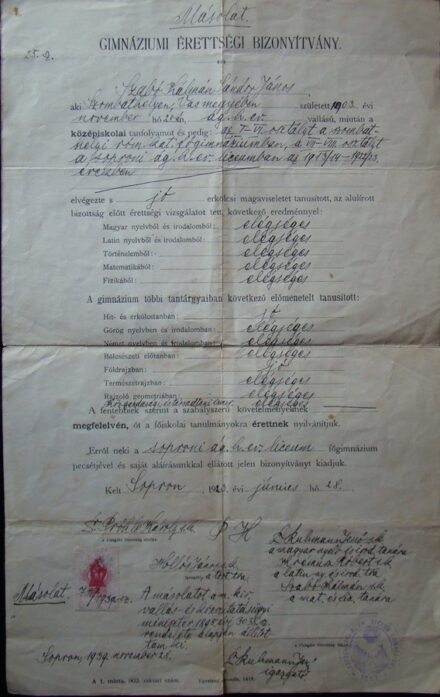 Másolat.
GIMNÁZIUMI ÉRETTSÉGI BIZONYÍTVÁNY.
Szabó Kálmán Sándor János
aki Szombathelyen, Vas megyében született 1903. évi
november hó 20án, ág. h. ev. vallású, miután a
középiskolai tanfolyamot és pedig: az I–VI. osztályt a szombat-
helyi róm. kat. főgimnáziumban, a VII–VIII. osztályt
a soproni ág. h. ev. líceumban az
években
elvégezte s jó erkölcsi magaviseletet tanusított, az alulírott
bizottság előtt érettségi vizsgálatot tett, következő eredménnyel:
Magyar nyelvből és irodalomból: elégséges
Latin nyelvből és irodalomból: elégséges
Történelemből: elégséges
Matematikából: elégséges
Fizikából: elégséges
A gimnázium többi tantárgyaiban következő előmenetelt tanusított:
Hit- és erkölcstanban: jó
Görög nyelvben és irodalomban: elégséges
Német nyelvben és irodalomban: elégséges
Bölcsészeti előtanban: elégséges
Földrajzban: jó
Természetrajzban: elégséges
Rajzoló geometriában: elégséges
elégséges
A fentebbiek szerint a szabályszerű követelményeknek
megfelelvén, őt a főiskolai tanulmányokra érettnek nyilvánítjuk.
Erről neki a soproni ág. h. ev. líceum főgimnázium
pecsétjével és saját aláírásunkkal ellátott jelen bizonyítványt kiadjuk.
Kelt Sopron, 1923. évi június hó 28.
P H
a magyar nyelv és irod. tanára
a latin ny. és irod. tra
a tört. tra.
Szabó Kálmán s.k.
a mat. és fiz. tanára
Másolat
A másolatot a m. kir.
vallás és közoktatásügyi
miniszter
rendelete alapján állítot-
tam ki.
Sopron, 1939. november 25.
igazgató